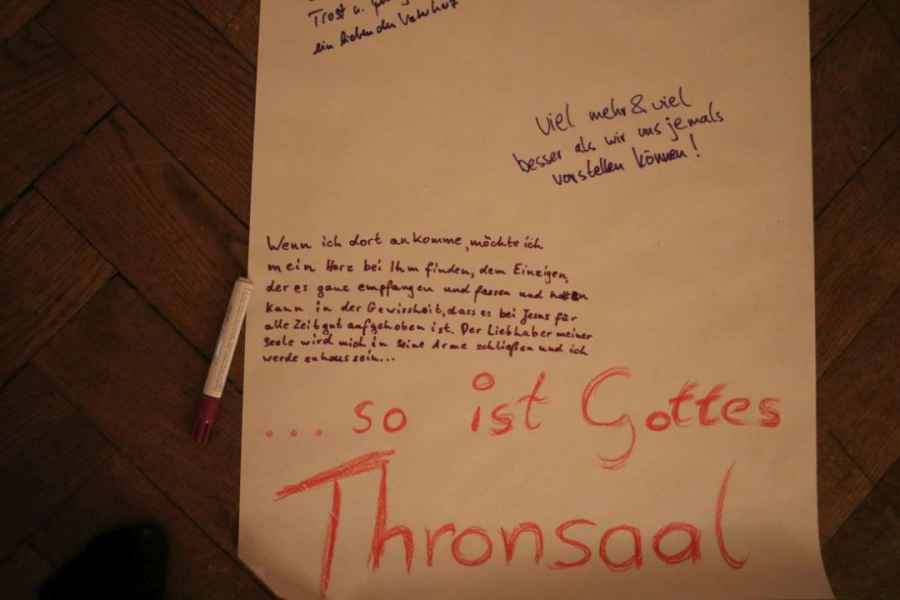 Trost u.
ein liebender
Viel mehr & viel
besser als wir uns jemals
vorstellen können!
Wenn ich dort ankomme, möchte ich
mein Herz bei Ihm finden, dem Einzigen,
der es ganz empfangen und fassen und
kann in der Gewissheit, dass es bei Jesus für
alle Zeit gut aufgehoben ist. Der Liebhaber meiner
Seele wird mich in seine Arme schließen und ich
werde zuhause sein...
...so ist Gottes
Thronsaal